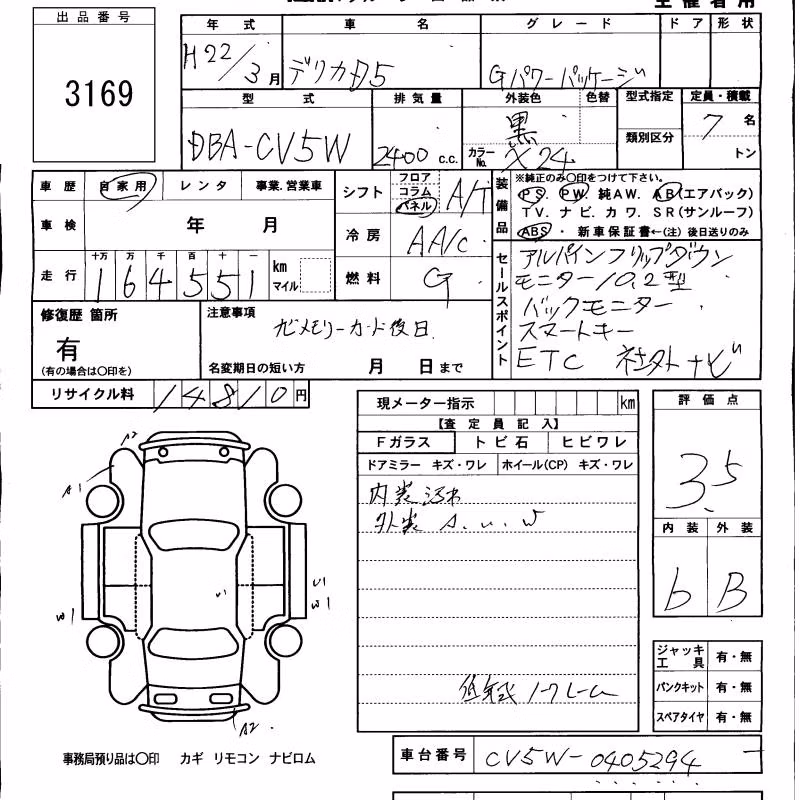 出品番号
3169
年式 車名 グレード ドア 形状
H22/3月 デリカD5 Gパワーパッケージ
型式 排気量 外装色 色替 型式指定 定員・積載
DBA-CV5W 2400 c.c. 黒 カラーNo. X24 類別区分 7名
トン
車歴 自家用 レンタ 事業.営業車
シフト フロア コラム パネル A/T
車検 年 月
冷房 AA/C
走行 十万 万 千 百 十 一
164551 km マイル
燃料 G
装備品 ※純正のみ○印をつけて下さい。
PS. PW. 純AW. AB(エアバック)
TV. ナビ. カワ. SR(サンルーフ)
ABS ・ 新車保証書←(注)後日送りのみ
セールスポイント
アルパインフリップダウン
モニター10.2型
バックモニター
スマートキー
ETC 社外ナビ
修復歴 箇所
有
(有の場合は○印を)
注意事項
ナビメモリーカード後日
名変期日の短い方 月 日まで
リサイクル料 14810円
現メーター指示 km
【査定員記入】
Fガラス トビ石 ヒビワレ
ドアミラー キズ・ワレ ホイール(CP) キズ・ワレ
内装汚れ
外装 A.U.W
評価点
3.5
内装 外装
b B
A2
A1
U1
W1
U1
W1
A2
ジャッキ工具 有・無
パンクキット 有・無
スペアタイヤ 有・無
事務局預り品は○印 カギ リモコン ナビロム
車台番号 CV5W-0405294